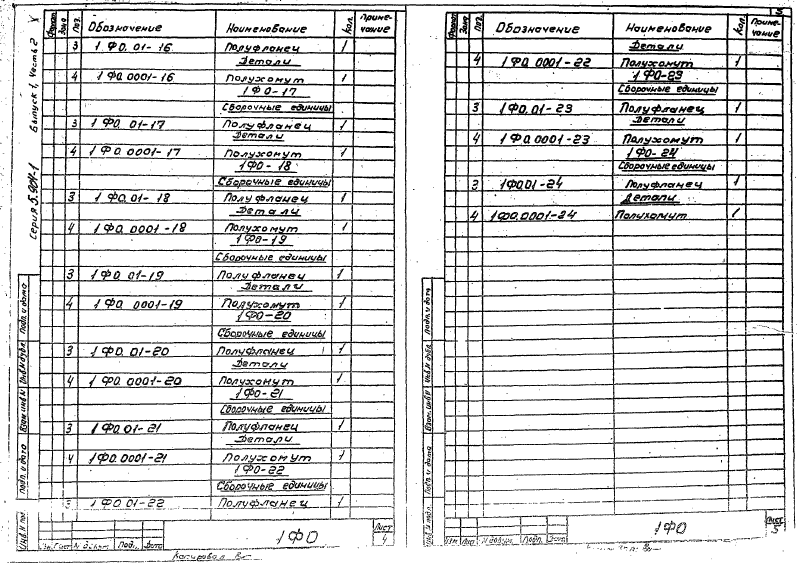 Серия 5.904-1 Выпуск 1, Часть 2
Формат Зона Поз. Обозначение Наименование Кол. Приме-
чание
3 1ФО.01-16 Полуфланец 1
Детали
4 1ФО.0001-16 Полухомут 1
1ФО-17
Сборочные единицы
3 1ФО.01-17 Полуфланец 1
Детали
4 1ФО.0001-17 Полухомут 1
1ФО-18
Сборочные единицы
3 1ФО.01-18 Полуфланец 1
Детали
4 1ФО.0001-18 Полухомут 1
1ФО-19
Сборочные единицы
3 1ФО.01-19 Полуфланец 1
Детали
4 1ФО.0001-19 Полухомут 1
1ФО-20
Сборочные единицы
3 1ФО.01-20 Полуфланец 1
Детали
4 1ФО.0001-20 Полухомут 1
1ФО-21
Сборочные единицы
3 1ФО.01-21 Полуфланец 1
Детали
4 1ФО.0001-21 Полухомут 1
1ФО-22
Сборочные единицы
3 1ФО.01-22 Полуфланец 1
Инв.N подл. Подп. и дата Взам.инв.N Инв.N дубл. Подп. и дата
Изм. Лист N докум. Подп. Дата
1ФО
Лист
4
Копировал
Формат Зона Поз. Обозначение Наименование Кол. Приме-
чание
Детали
4 1ФО.0001-22 Полухомут 1
1ФО-23
Сборочные единицы
3 1ФО.01-23 Полуфланец 1
Детали
4 1ФО.0001-23 Полухомут 1
1ФО-24
Сборочные единицы
3 1ФО.01-24 Полуфланец 1
Детали
4 1ФО.0001-24 Полухомут 1
Инв.N подл. Подп. и дата Взам.инв.N Инв.N дубл. Подп. и дата
Изм. Лист N докум. Подп. Дата
1ФО
Лист
5